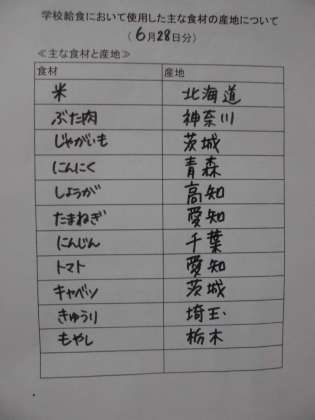 学校給食において使用した主な食材の産地について
（6月28日分）
≪主な食材と産地≫
食材 産地
米 北海道
ぶた肉 神奈川
じゃがいも 茨城
にんにく 青森
しょうが 高知
たまねぎ 愛知
にんじん 千葉
トマト 愛知
キャベツ 茨城
きゅうり 埼玉
もやし 栃木